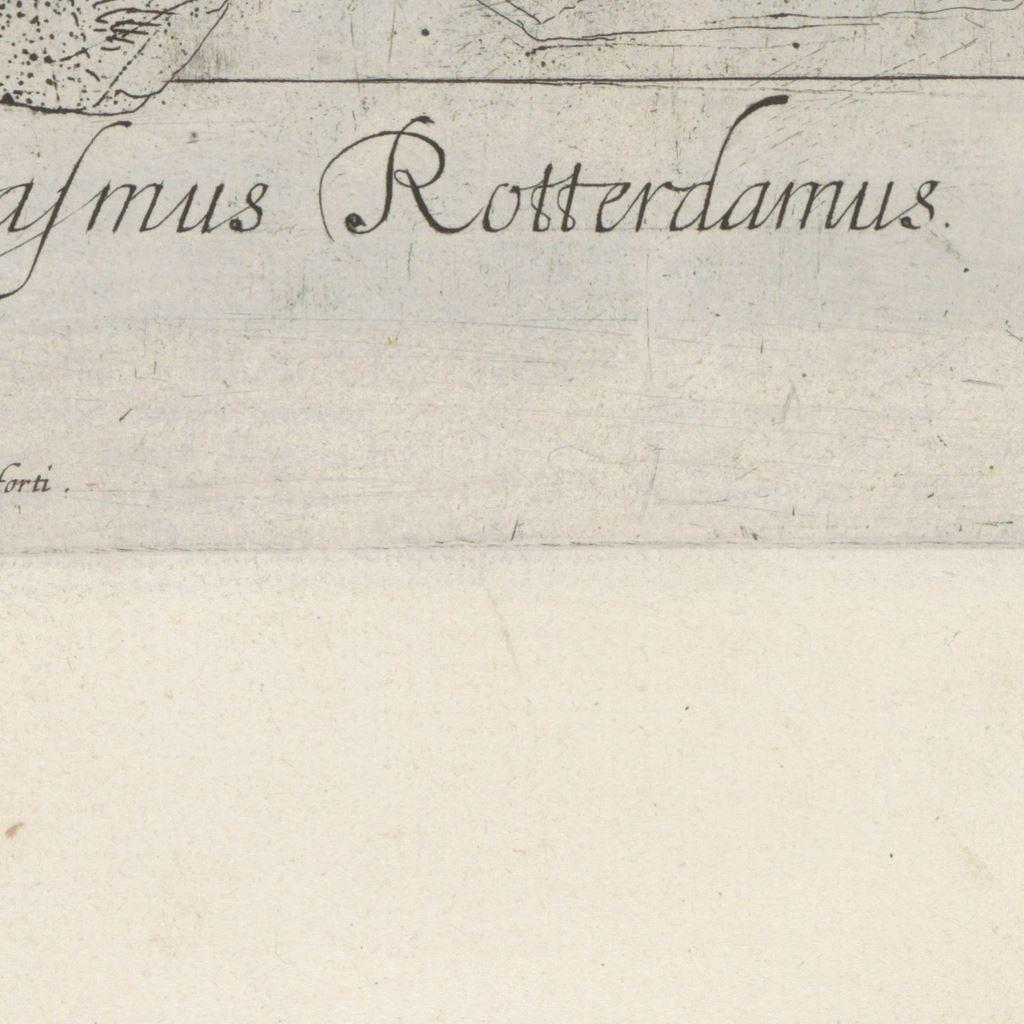 aſmus Rotterdamus.
forti.